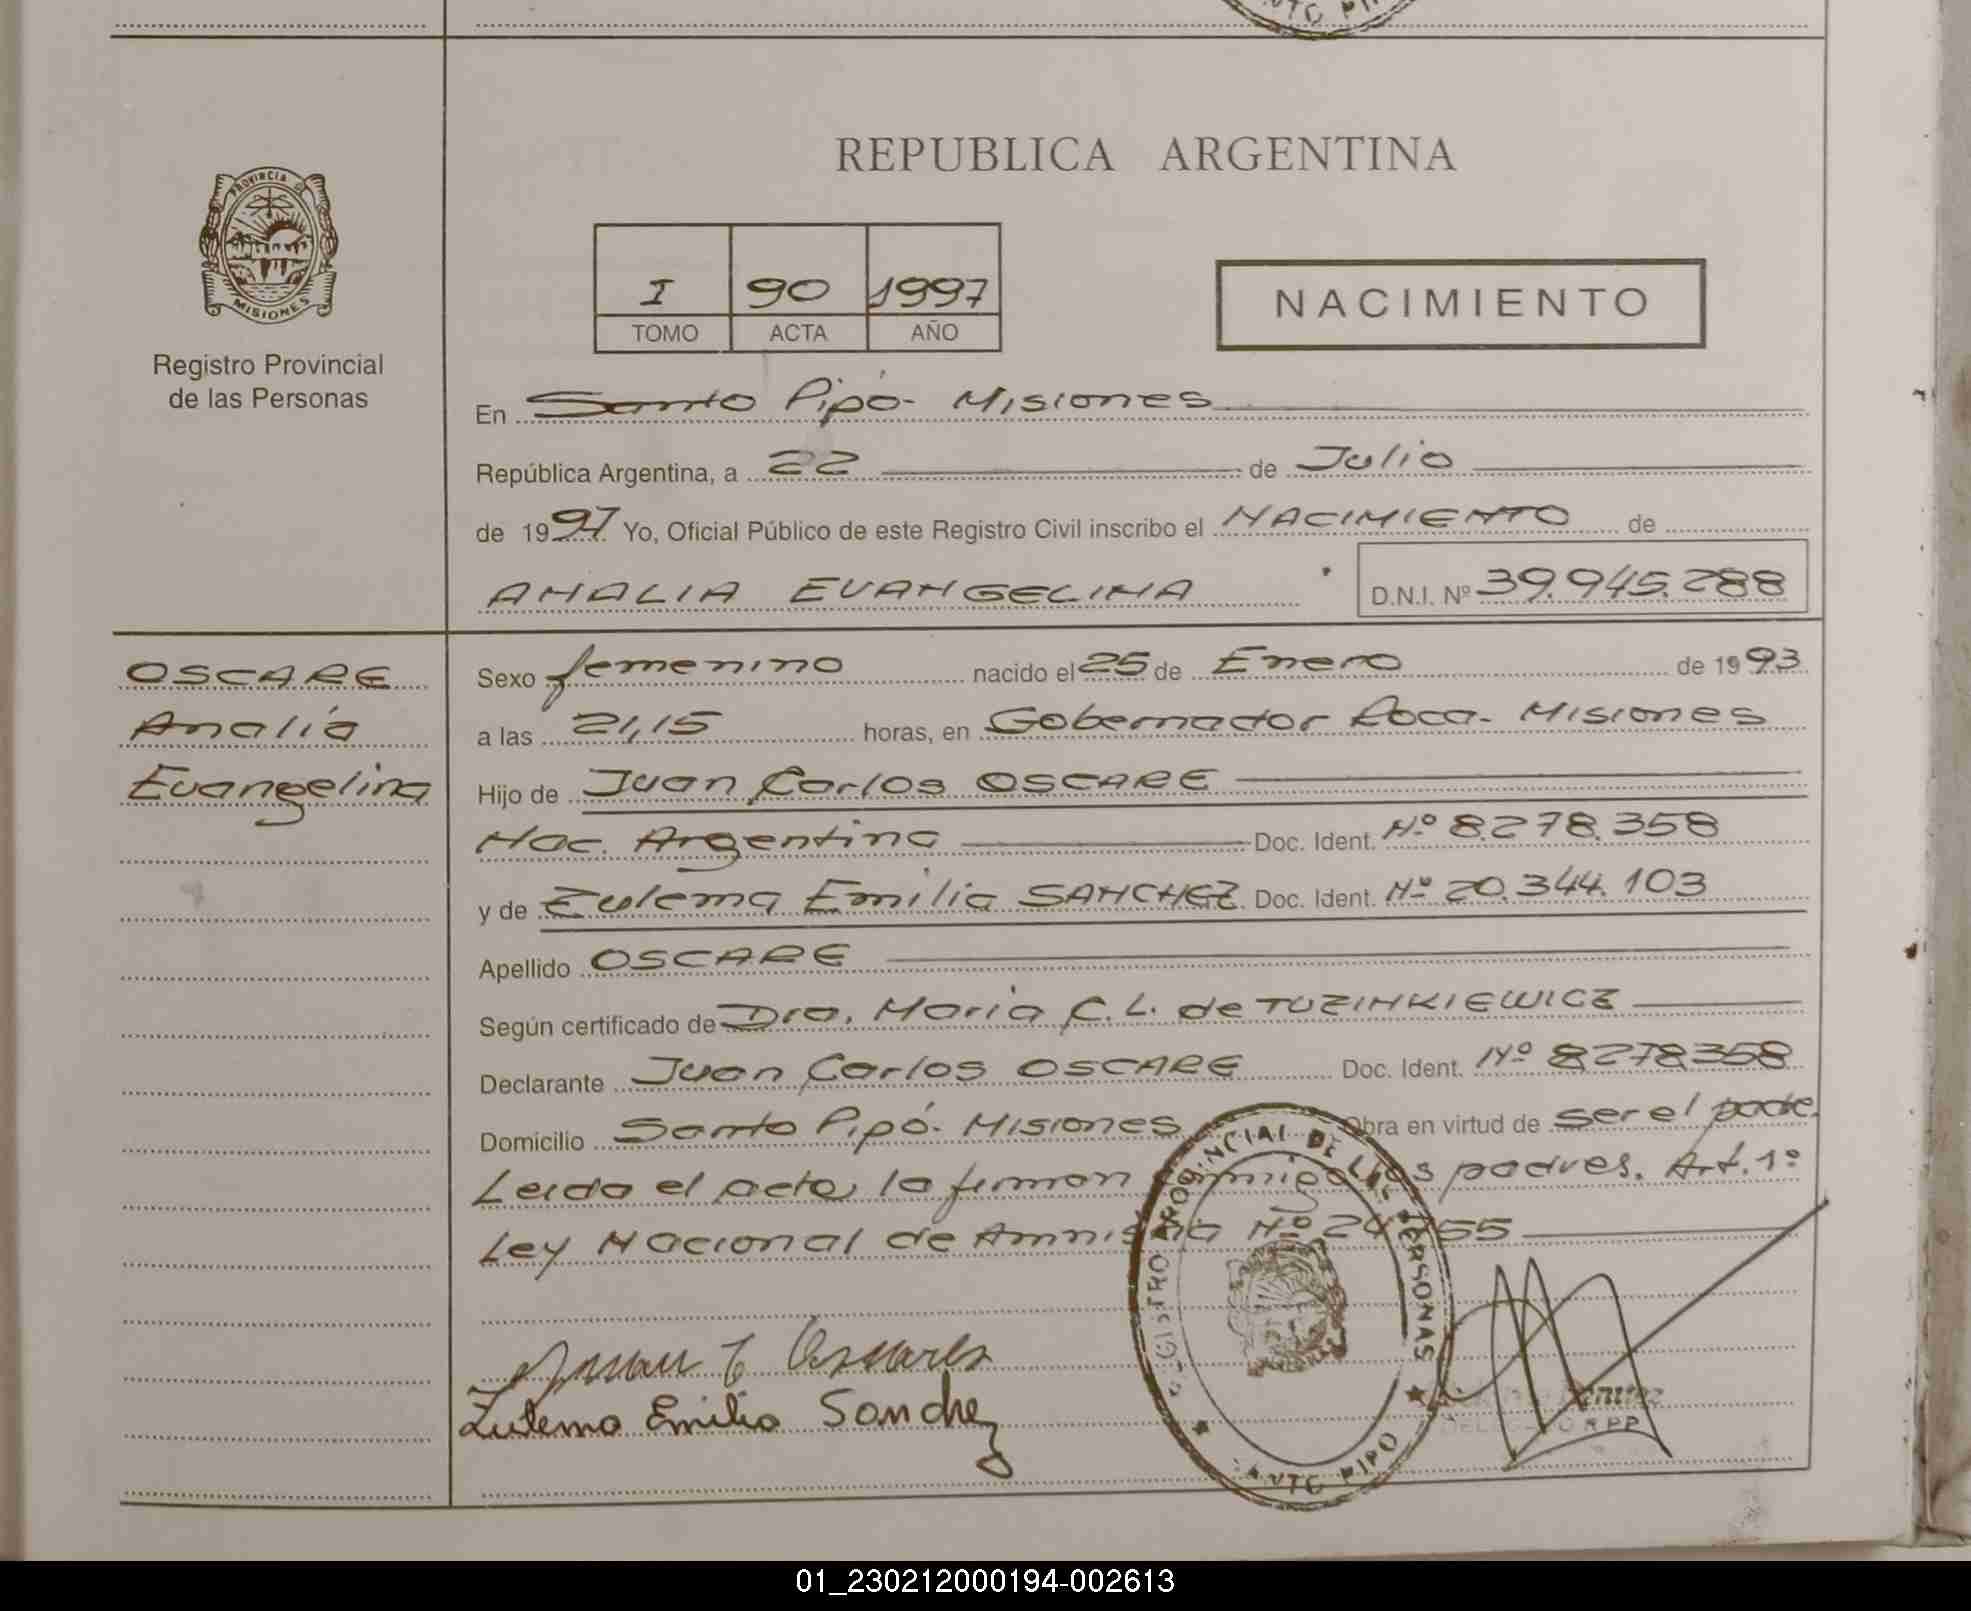 NTO PI
PROVINCIA DE
MISIONES
Registro Provincial
de las Personas
REPUBLICA ARGENTINA
I 90 1997
TOMO ACTA AÑO
NACIMIENTO
En Santo Pipó - Misiones
República Argentina, a 22 de Julio
de 1997 Yo, Oficial Público de este Registro Civil inscribo el NACIMIENTO de
ANALIA EVANGELINA D.N.I. Nº 39.945.288
OSCARE
Analía
Evangelina
Sexo femenino nacido el 25 de Enero de 1993
a las 21,15 horas, en Gobernador Roca - Misiones
Hijo de Juan Carlos OSCARE
Nac. Argentina Doc. Ident. Nº 8.278.358
y de Zulema Emilia SANCHEZ Doc. Ident. Nº 20.344.103
Apellido OSCARE
Según certificado de Dra. Maria C. L. de TUZINKIEWICZ
Declarante Juan Carlos OSCARE Doc. Ident. Nº 8278358
Domicilio Santo Pipó - Misiones Obra en virtud de ser el padre.
Leida el acta, la firman conmigo los padres. Art. 1º
Ley Nacional de Amnistia Nº 24.755
REGISTRO PROVINCIAL DE LAS PERSONAS
SANTO PIPO
Juan C Oscares
Zulema Emilia Sanchez
DELEGADO R P P
01_230212000194-002613